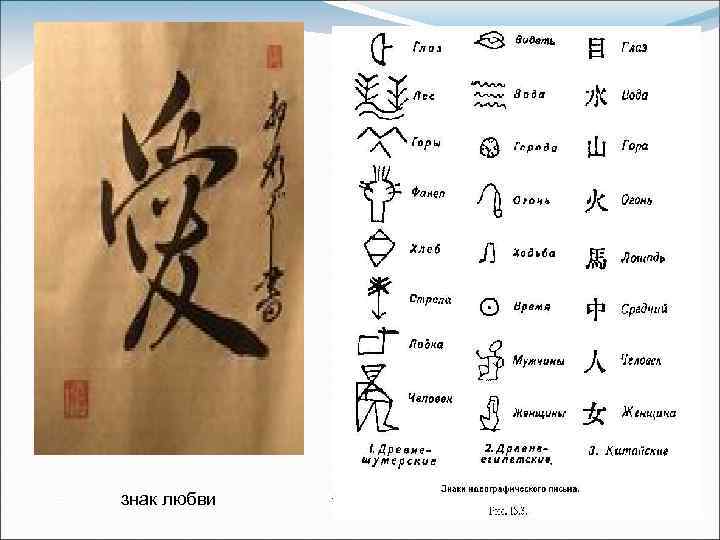 愛
знак любви
Глаз
Лес
Горы
Факел
Хлеб
Стрела
Лодка
Человек
1. Древне-
шумерские
Видеть
Вода
Города
Огонь
Ходьба
Время
Мужчины
Женщины
2. Древне-
египетские.
目 Глаз
水 Вода
山 Гора
火 Огонь
馬 Лошадь
中 Средний
人 Человек
女 Женщина
3. Китайские
Знаки идеографического письма.